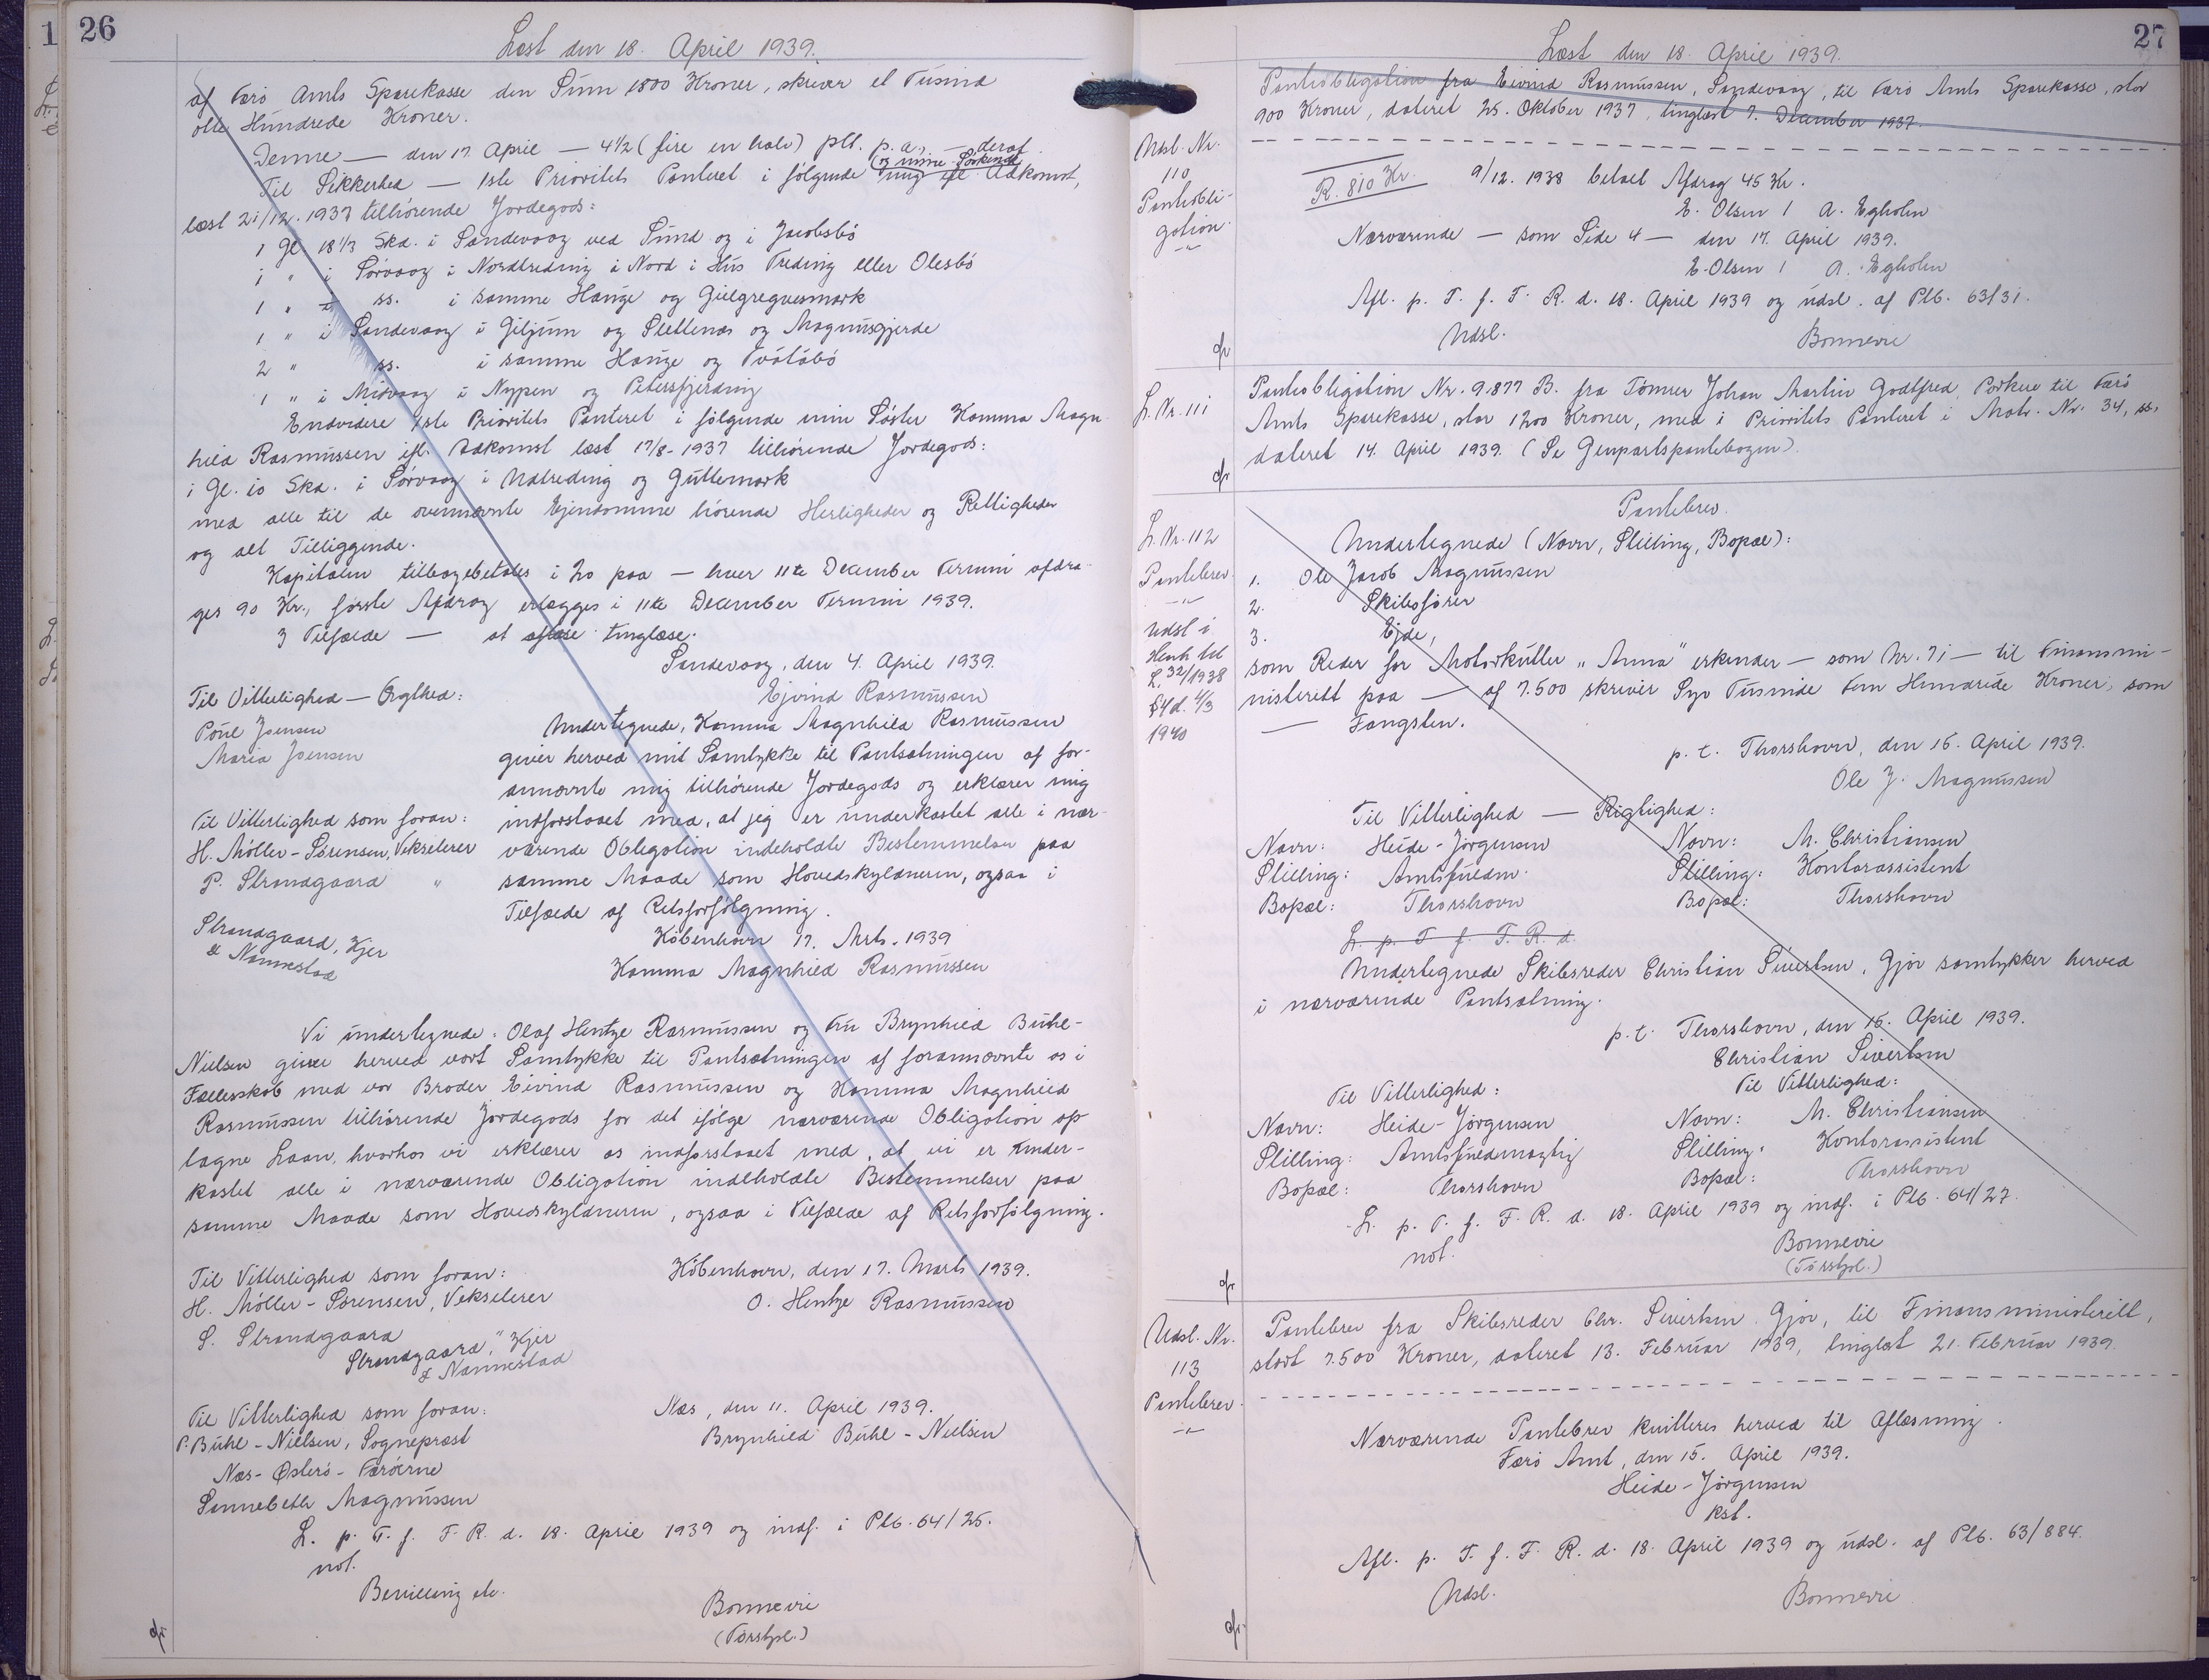 26
Læst den 18. April 1939.
af Færø Amts Sparekasse den Sum 1800 Kroner, skriver et Tusind
otte Hundrede Kroner.
Denne — den 17. April — 4 1/2 (fire en halv) pCt. p. a. — deraf
(og mine Søskende
Til Sikkerhed — 1ste Prioritets Panteret i følgende mig ifl. Adkomst,
læst 21/12. 1937 tilhørende Jordegods:
1 Gl. 18 1/3 Skd. i Sandevaag ved Sund og i Jacobsbø
1 " i Sørvaag i Nordtreding i Nord i Hus Treding eller Olesbø
1 " ss. i samme Hauge og Gielgreguesmark
1 " i Sandevaag i Giljum og Slettenæs og Magnusgjerde
2 " ss. i samme Hauge og Tvátábø
1 " i Midvaag i Nypen og Petersfjerding
Endvidere 1ste Prioritets Panteret i følgende min Søster Hamma Magn-
hild Rasmussen ifl. Adkomst læst 17/8-1937 tilhørende Jordegods:
1 Gl. 10 Skd. i Sørvaag i Udtreding og Guttemark
med alle til de ovennævnte Ejendomme hørende Herligheder og Rettigheder
og alt Tilliggende.
Kapitalen tilbagebetales i 20 paa — hver 11te December Termin afdra-
ges 90 Kr., første Afdrag erlægges i 11te December Termin 1939.
I Tilfælde — at aflæse tinglæse.
Sandevaag, den 4. April 1939.
Til Vitterlighed — Ægthed: Ejvind Rasmussen
Poul Joensen
Maria Joensen
Undertegnede, Hamma Magnhild Rasmussen
giver herved mit Samtykke til Pantsætningen af for-
annævnte mig tilhørende Jordegods og erklærer mig
Til Vitterlighed som foran: indforstaaet med, at jeg er underkastet alle i nær-
H. Møller-Sørensen, Vekselerer værende Obligation indeholdte Bestemmelser paa
P. Strandgaard " samme Maade som Hovedskyldneren, ogsaa i
Tilfælde af Retsforfølgning.
Strandgaard, Kjer
& Nannestad
København 17. Marts. 1939
Hamma Magnhild Rasmussen
Vi undertegnede: Olaf Hentze Rasmussen og Fru Brynhild Buhl-
Nielsen giver herved vort Samtykke til Pantsætningen af forannævnte os i
Fællesskab med vor Broder Eivind Rasmussen og Hamma Magnhild
Rasmussen tilhørende Jordegods for det ifølge nærværende Obligation op
tagne Laan, hvorhos vi erklærer os indforstaaet med, at vi er under-
kastet alle i nærværende Obligation indeholdte Bestemmelser paa
samme Maade som Hovedskyldneren, ogsaa i Tilfælde af Retsforfølgning.
Til Vitterlighed som foran: København, den 17. Marts 1939.
H. Møller-Sørensen, Vekselerer O. Hentze Rasmussen
S. Strandgaard "
Strandgaard, Kjer
& Nannestad
Til Vitterlighed som foran: Næs, den 11. April 1939.
P. Buhl-Nielsen, Sognepræst Brynhild Buhl-Nielsen
Næs-Østerø-Færøerne
Sannebeth Magnussen
L. p. T. f. F. R. d. 18. April 1939 og indf. i Plb. 64/25.
not.
Bevilling etc.
Bonnevie
27
Læst den 18. April 1939.
Pantobligation fra Eivind Rasmussen, Sandevaag, til Færø Amts Sparekasse, stor
900 Kroner, dateret 25. Oktober 1937, tinglæst 7. December 1937.
Udsl. Nr.
110
Pantobli-
gation
-"-
R. 810 Kr. 9/12. 1938 betalt Afdrag 45 Kr.
E. Olsen / A. Egholm
Nærværende — som Side 4 — den 17. April 1939.
E. Olsen / A. Egholm
Afl. p. T. f. F. R. d. 18. April 1939 og udsl. af Plb. 63/31.
Udsl. Bonnevie
L. Nr. 111
Pantobligation Nr. 9.877 B. fra Tømrer Johan Martin Godtfred, Porkere til Færø
Amts Sparekasse, stor 1200 Kroner, med 1 Prioritets Panteret i Matr. Nr. 34, ss.
dateret 14. April 1939. (Se Genpartspantebogen).
L. Nr. 112
Pantebrev
-"-
Udsl i
Henh til
L. 32/1938
§4 d. 4/3
1940
Pantebrev.
Undertegnede (Navn, Stilling, Bopæl):
1. Ole Jacob Magnussen
2. Skibsfører
3. Ejde,
som Reder for Motorkutter "Anna" erkender — som Nr. 71 — til Finansmi-
nisteriet paa — af 7.500 skriver Syv Tusinde Fem Hundrede Kroner, som
— Fangsten.
p. t. Thorshavn, den 15. April 1939.
Ole J. Magnussen
Til Vitterlighed — Rigtighed:
Navn: Heide-Jørgensen Navn: M. Christiansen
Stilling: Amtsfuldm. Stilling: Kontorassistent
Bopæl: Thorshavn Bopæl: Thorshavn
L. p. T. f. F. R. d.
Undertegnede Skibsreder Christian Sivertsen, Gjov samtykker herved
i nærværende Pantsætning.
p. t. Thorshavn, den 15. April 1939.
Christian Sivertsen
Til Vitterlighed: Til Vitterlighed:
Navn: Heide-Jørgensen Navn: M. Christiansen
Stilling: Amtsfuldmægtig Stilling: Kontorassistent
Bopæl: Thorshavn Bopæl: Thorshavn
L. p. T. f. F. R. d. 18. April 1939 og indf. i Plb. 64/27.
not. Bonnevie
Udsl. Nr.
113
Pantebrev
-"-
Pantebrev fra Skibsreder Chr. Sivertsen Gjov, til Finansministeriet,
stort 7.500 Kroner, dateret 13. Februar 1939, tinglæst 21. Februar 1939.
Nærværende Pantebrev kvitteres herved til Aflæsning.
Færø Amt, den 15. April 1939.
Heide-Jørgensen
kst.
Afl. p. T. f. F. R. d. 18. April 1939 og udsl. af Plb. 63/884.
Udsl. Bonnevie